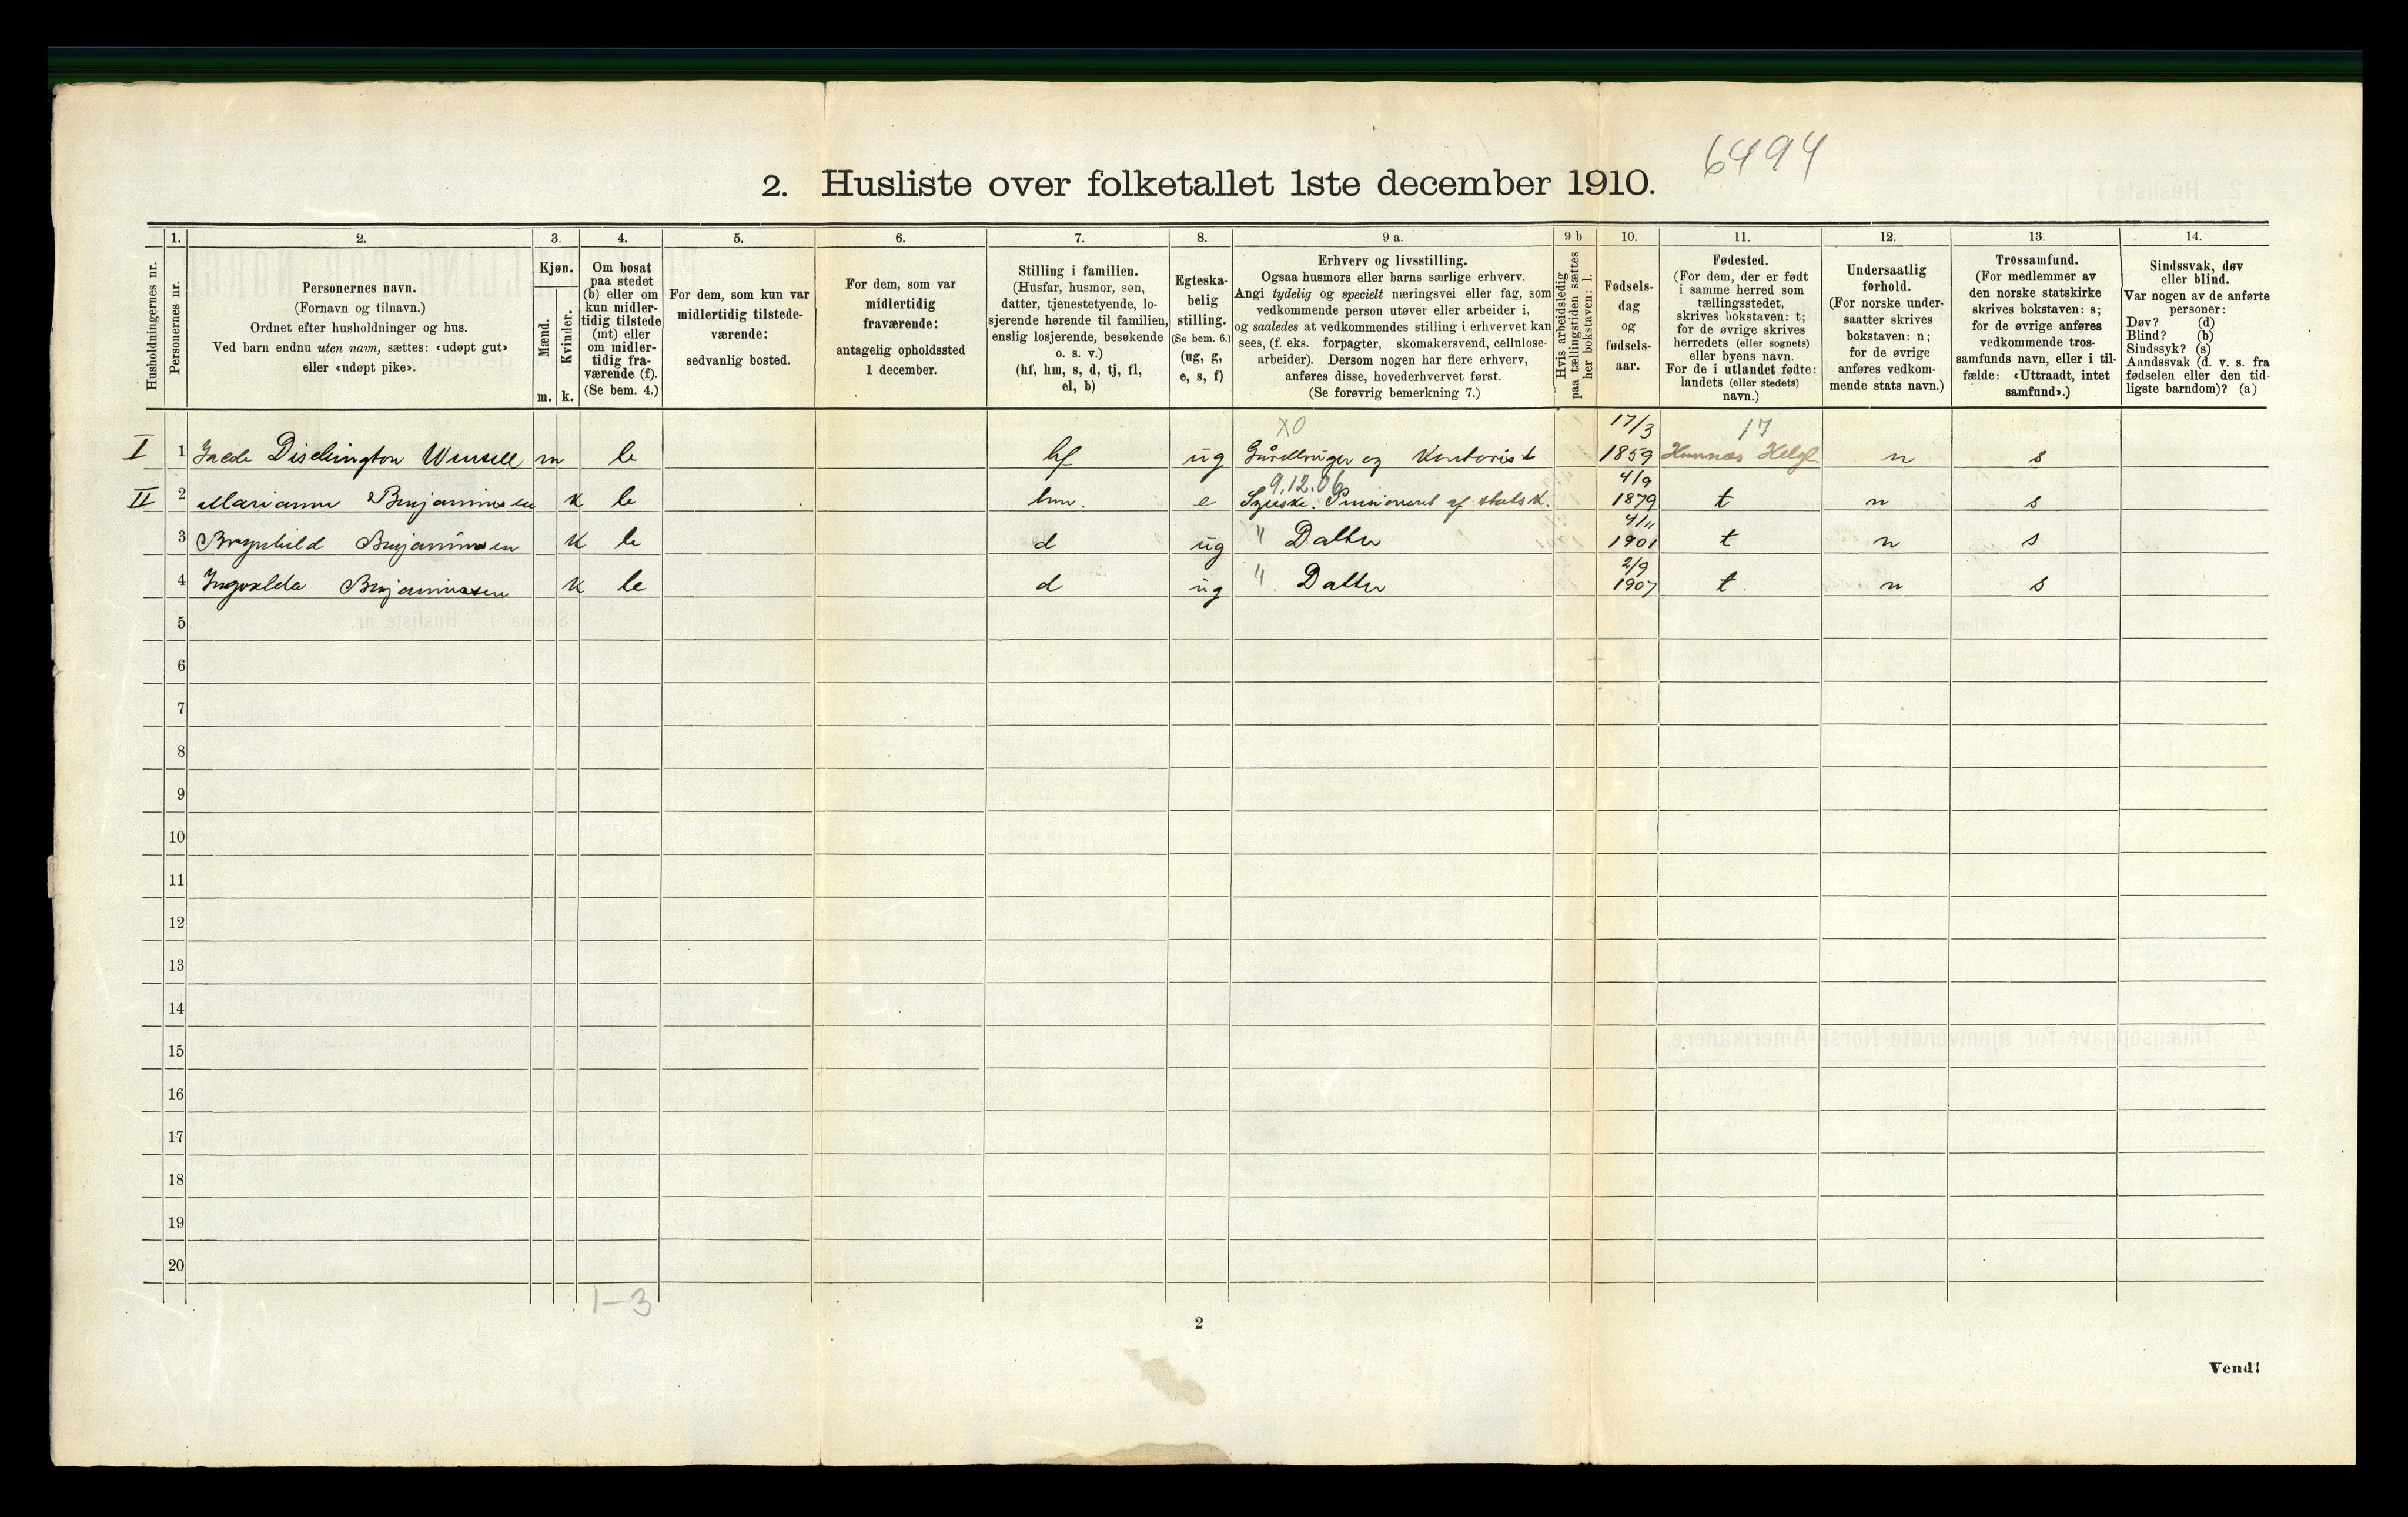 6494
2. Husliste over folketallet 1ste december 1910.
Husholdningernes nr.
1.
Personernes nr.
2.
Personernes navn.
(Fornavn og tilnavn.)
Ordnet efter husholdninger og hus.
Ved barn endnu uten navn, sættes: «udøpt gut»
eller «udøpt pike».
3.
Kjøn.
Mænd.
Kvinder.
m. k.
4.
Om bosat
paa stedet
(b) eller om
kun midler-
tidig tilstede
(mt) eller
om midler-
tidig fra-
værende (f).
(Se bem. 4.)
5.
For dem, som kun var
midlertidig tilstede-
værende:
sedvanlig bosted.
6.
For dem, som var
midlertidig
fraværende:
antagelig opholdssted
1 december.
7.
Stilling i familien.
(Husfar, husmor, søn,
datter, tjenestetyende, lo-
sjerende hørende til familien,
enslig losjerende, besøkende
o. s. v.)
(hf, hm, s, d, tj, fl,
el, b)
8.
Egteska-
belig
stilling.
(Se bem. 6.)
(ug, g,
e, s, f)
9 a.
Erhverv og livsstilling.
Ogsaa husmors eller barns særlige erhverv.
Angi tydelig og specielt næringsvei eller fag, som
vedkommende person utøver eller arbeider i,
og saaledes at vedkommendes stilling i erhvervet kan
sees, (f. eks. forpagter, skomakersvend, cellulose-
arbeider). Dersom nogen har flere erhverv,
anføres disse, hovederhvervet først.
(Se forøvrig bemerkning 7.)
9 b
Hvis arbeidsledig
paa tællingstiden sættes
her bokstaven: l.
10.
Fødsels-
dag
og
fødsels-
aar.
11.
Fødested.
(For dem, der er født
i samme herred som
tællingsstedet,
skrives bokstaven: t;
for de øvrige skrives
herredets (eller sognets)
eller byens navn.
For de i utlandet fødte:
landets (eller stedets)
navn.)
12.
Undersaatlig
forhold.
(For norske under-
saatter skrives
bokstaven: n;
for de øvrige
anføres vedkom-
mende stats navn.)
13.
Trossamfund.
(For medlemmer av
den norske statskirke
skrives bokstaven: s;
for de øvrige anføres
vedkommende tros-
samfunds navn, eller i til-
fælde: «Uttraadt, intet
samfund».)
14.
Sindssvak, døv
eller blind.
Var nogen av de anførte
personer:
Døv? (d)
Blind? (b)
Sindssyk? (s)
Aandssvak (d. v. s. fra
fødselen eller den tid-
ligste barndom)? (a)
XO 17/3 17
I 1 Dischington m b hf ug Gårdbruger og Kontorist 1859 Helgl. n s
9.12.06 4/9
II 2 Marianne Benjaminsen k b hm. e Syerske. af 1879 t n s
4/11
3 Brynhild Benjaminsen k b d ug " Datter 1901 t n s
2/9
4 Ingvalda Benjaminsen k b d ug " Datter 1907 t n s
5
6
7
8
9
10
11
12
13
14
15
16
17
18
19
20
1-3
2
Vend!